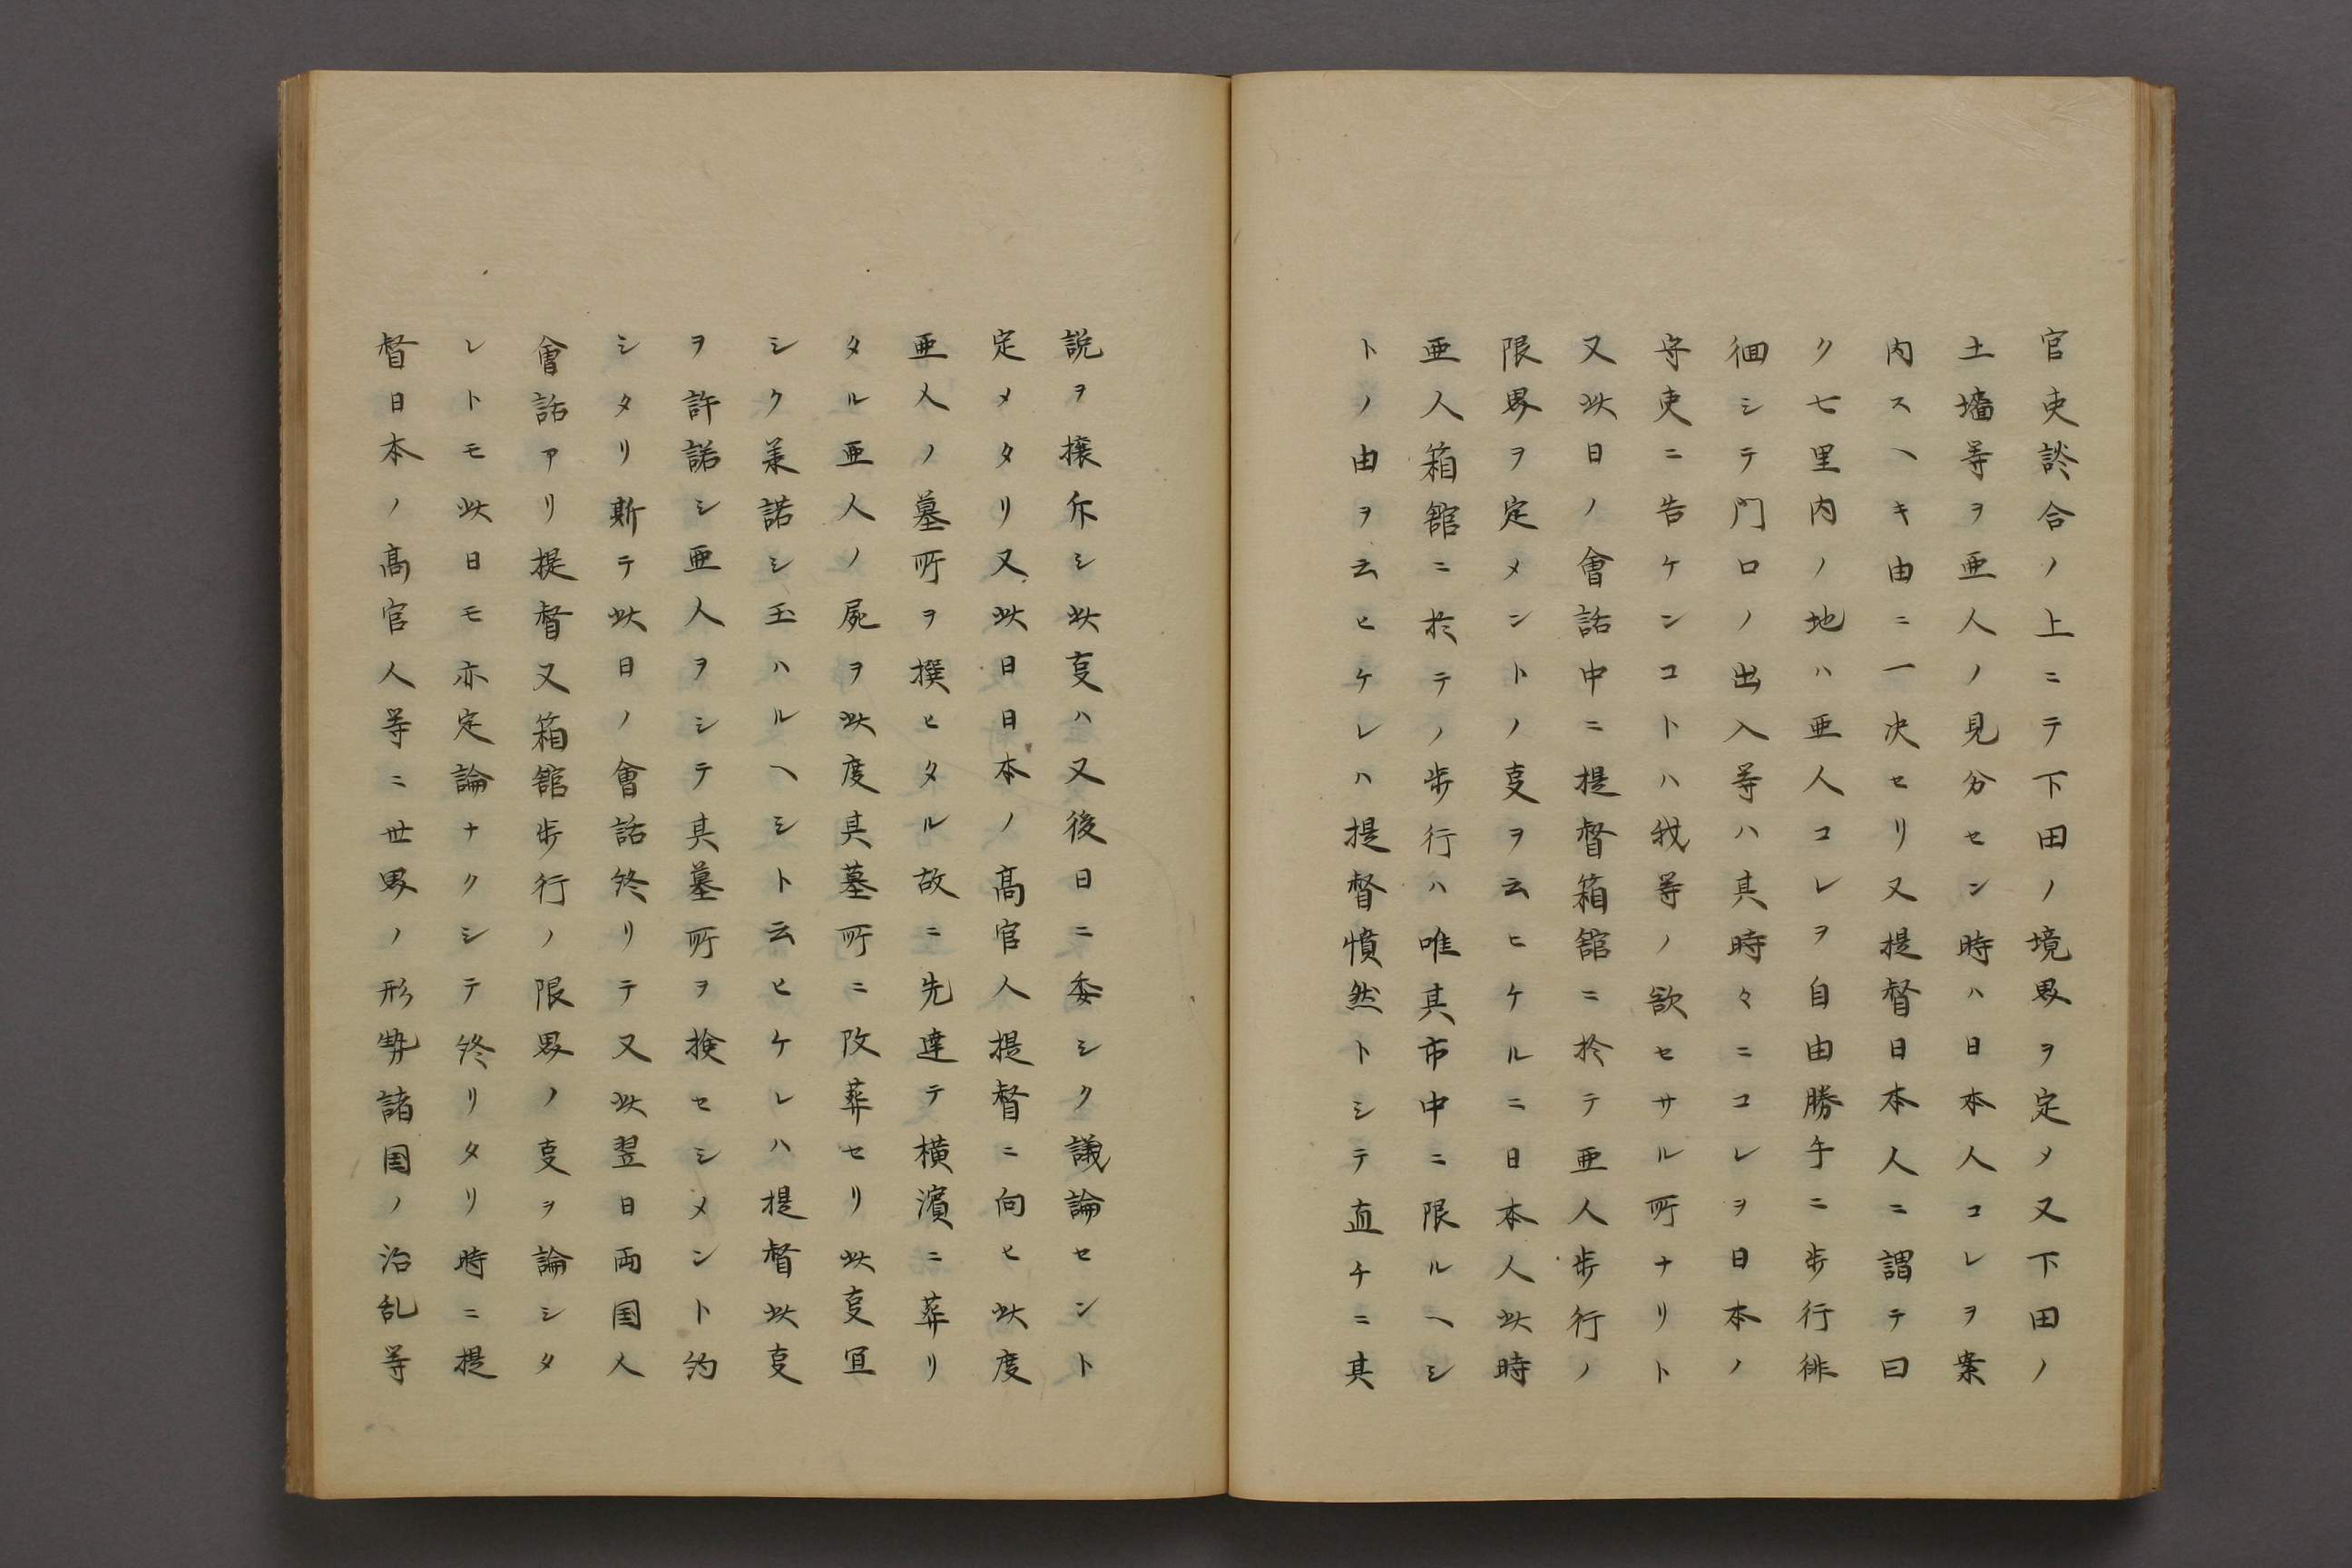 官吏談合ノ上ニテ下田ノ境界ヲ定メ又下田ノ
土墻等ヲ亜人ノ見分セン時ハ日本人コレヲ案
内スヘキ由ニ一决セリ又提督日本人ニ謂テ曰
ク七里内ノ地ハ亜人コレヲ自由勝手ニ歩行徘
徊シテ門口ノ出入等ハ其時々ニコレヲ日本ノ
守吏ニ告ケンコトハ我等ノ欲セサル所ナリト
又此日ノ會話中ニ提督箱舘ニ於テ亜人歩行ノ
限界ヲ定メントノ㕝ヲ云ヒケルニ日本人此時
亜人箱舘ニ於テノ歩行ハ唯其市中ニ限ルヘシ
トノ由ヲ云ヒケレハ提督憤然トシテ直チニ其
説ヲ攘斥シ此㕝ハ又後日ニ委シク議論セント
定メタリ又此日日本ノ髙官人提督ニ向ヒ此度
亜人ノ墓所ヲ撰ヒタル故ニ先達テ横濱ニ葬リ
タル亜人ノ屍ヲ此度其墓所ニ改葬セリ此㕝冝
シク羕諾シ玉ハルヘシト云ヒケレハ提督此㕝
ヲ許諾シ亜人ヲシテ其墓所ヲ検セシメント約
シタリ斯テ此日ノ會話終リテ又此翌日両国人
會話アリ提督又箱舘歩行ノ限界ノ㕝ヲ論シタ
レトモ此日モ亦定論ナクシテ終リタリ時ニ提
督日本ノ髙官人等ニ世界ノ形勢諸国ノ治乱等